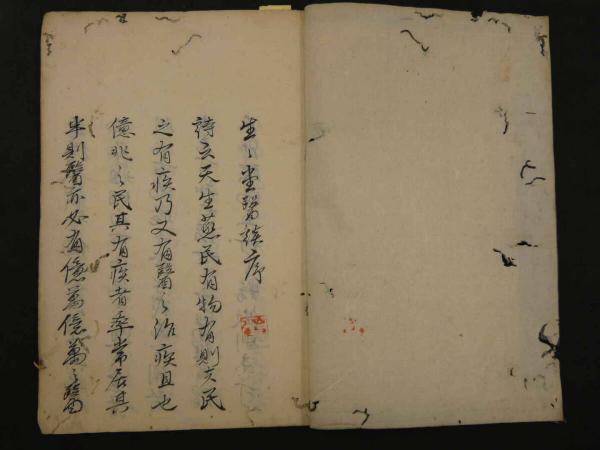 生々堂醫談序
詩云天生蒸民有物有則夫民
之有疾乃又有醫之治疾且也
億兆之民其有疾者率常居其
半則醫亦必有億萬億萬之醫